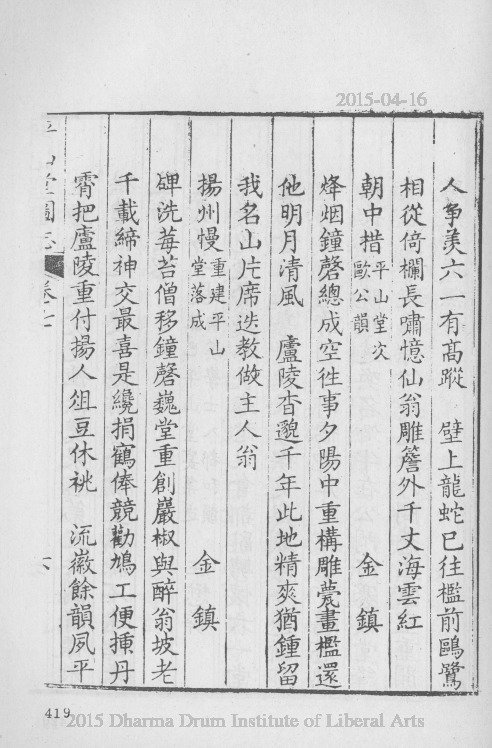 2015-04-16
人爭羨六一有高蹤　壁上龍蛇已往檻前鷗鷺
相從倚欄長嘯憶仙翁雕簷外千丈海雲紅
朝中措平山堂次歐公韻　金鎮
烽烟鐘磬總成空徃事夕陽中重構雕甍畫檻還
他明月清風　廬陵杳邈千年此地精爽猶鍾留
我名山片席迭教做主人翁
揚州慢重建平山堂落成　金鎮
碑洗莓苔僧移鐘磬巍堂重創巖椒與醉翁坡老
千載締神交最喜是纔捐鶴俸競勸鳩工便揷丹
霄把廬陵重付揚人俎豆休祧　流徽餘韻夙平
山堂圖志　卷七　六
419
2015 Dharma Drum Institute of Liberal Arts